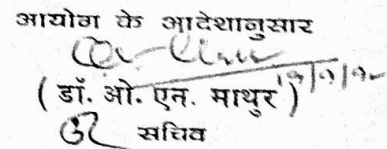 आयोग के आदेशानुसार
( डॉ. ओ. एन. माथुर )
सचिव